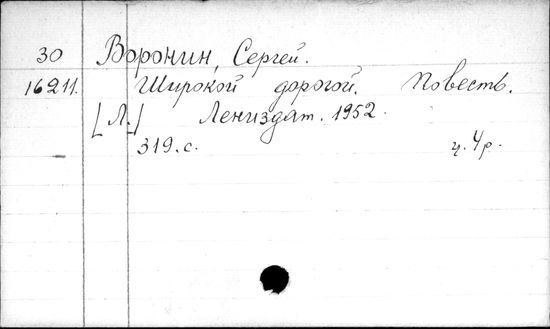 30 Воронин, Сергей.
16211. Широкой дорогой. Повесть.
[Л.] Лениздат. 1952.
319.с. ц. 4р.